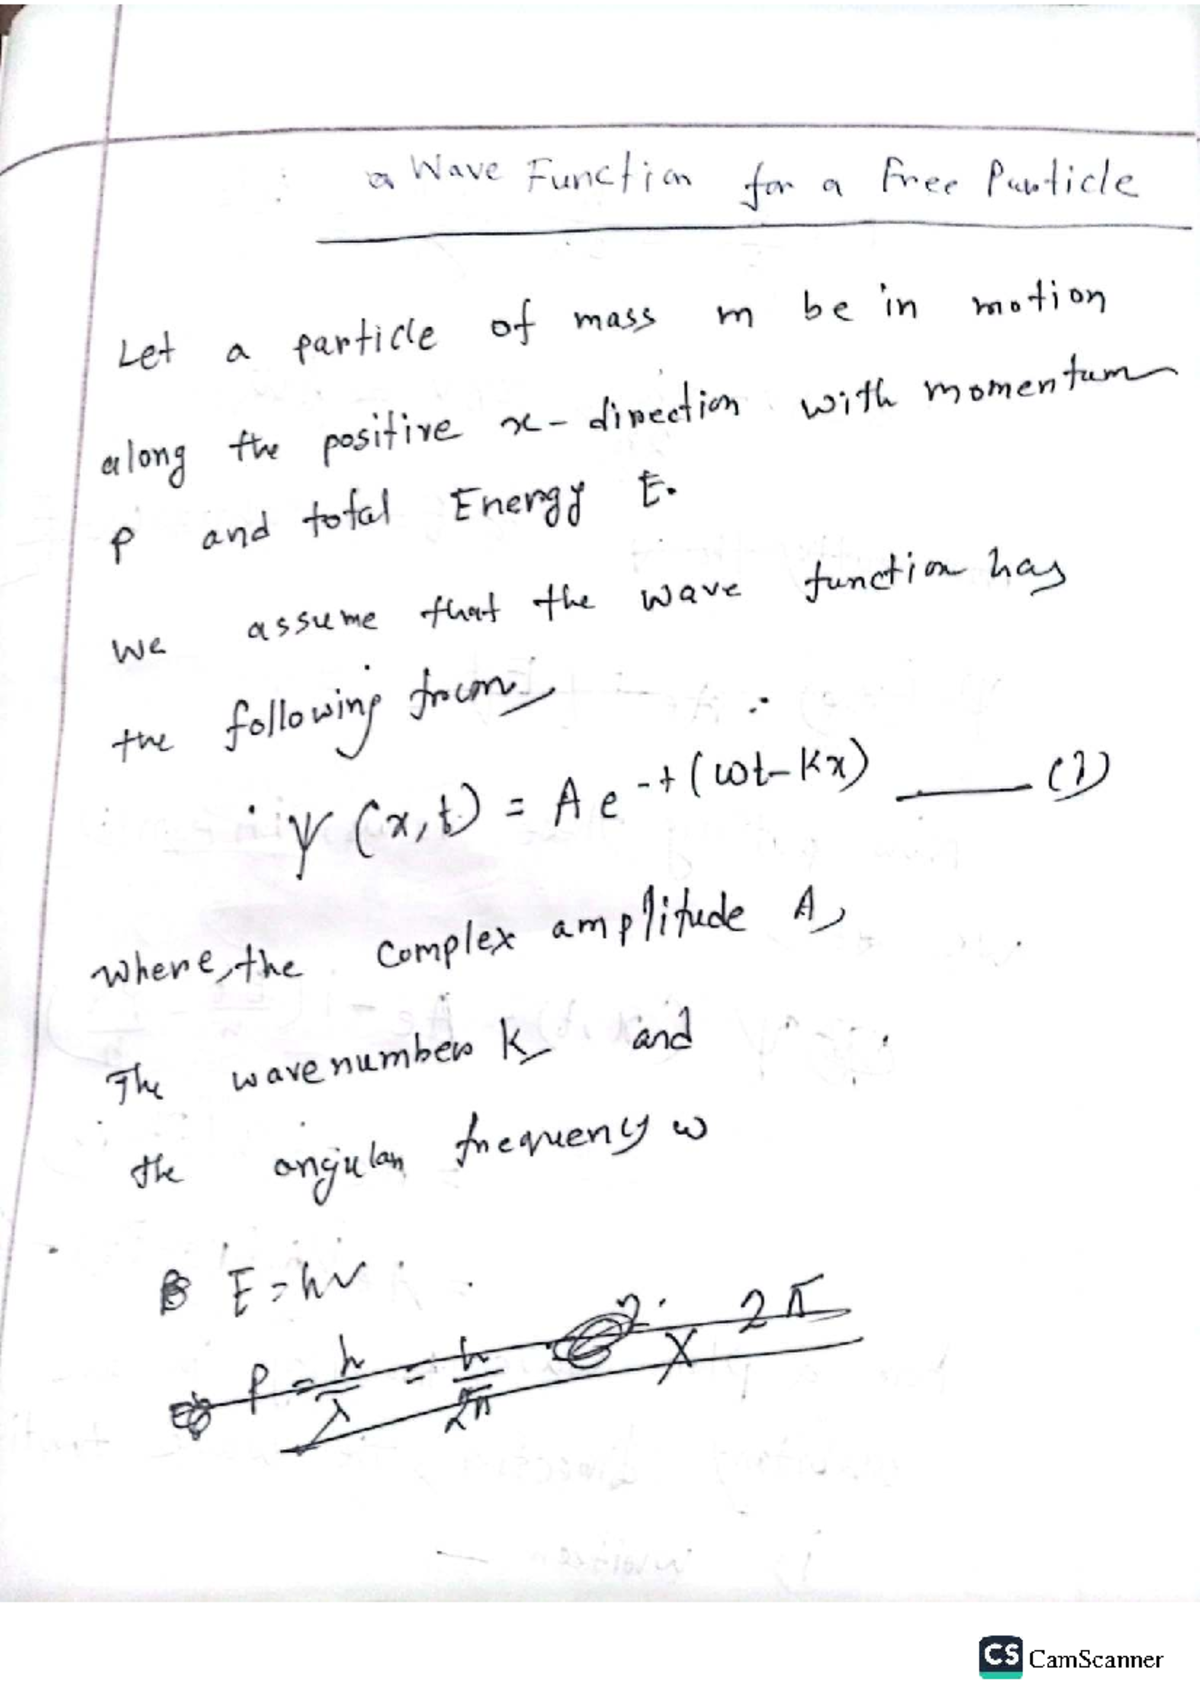 a Wave Function for a Free Particle
Let a particle of mass m be in motion
along the positive x-direction with momentum
P and total Energy E.
We assume that the wave function has
the following from,
ψ(x,t) = A e^-i(ωt-kx) ____ (1)
Where, the complex amplitude A,
The wave number k and
the angular frequency ω
E = hν
P = h/λ = h/2π × 2π
CS CamScanner